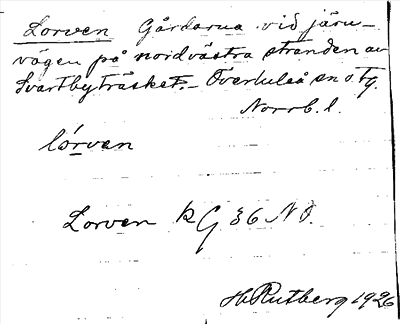 Lorven Gårdarna vid järn-
vägen på nordvästra stranden av
Svartbyträsket. - Överluleå sn o. tg.
Norrb. l.
lórven
Lorven k G 36 NO.
H. Rutberg 1926